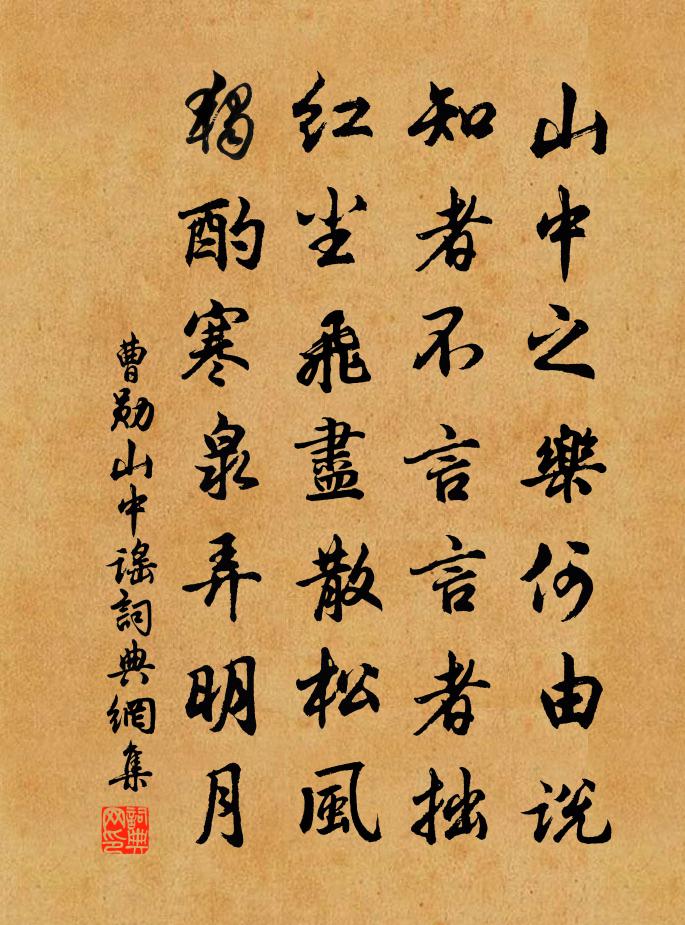 山中之樂何由說
知者不言言者拙
紅尘飛盡散松風
獨酌寒泉弄明月
曹勛山中謠詞典網集
詞典网印